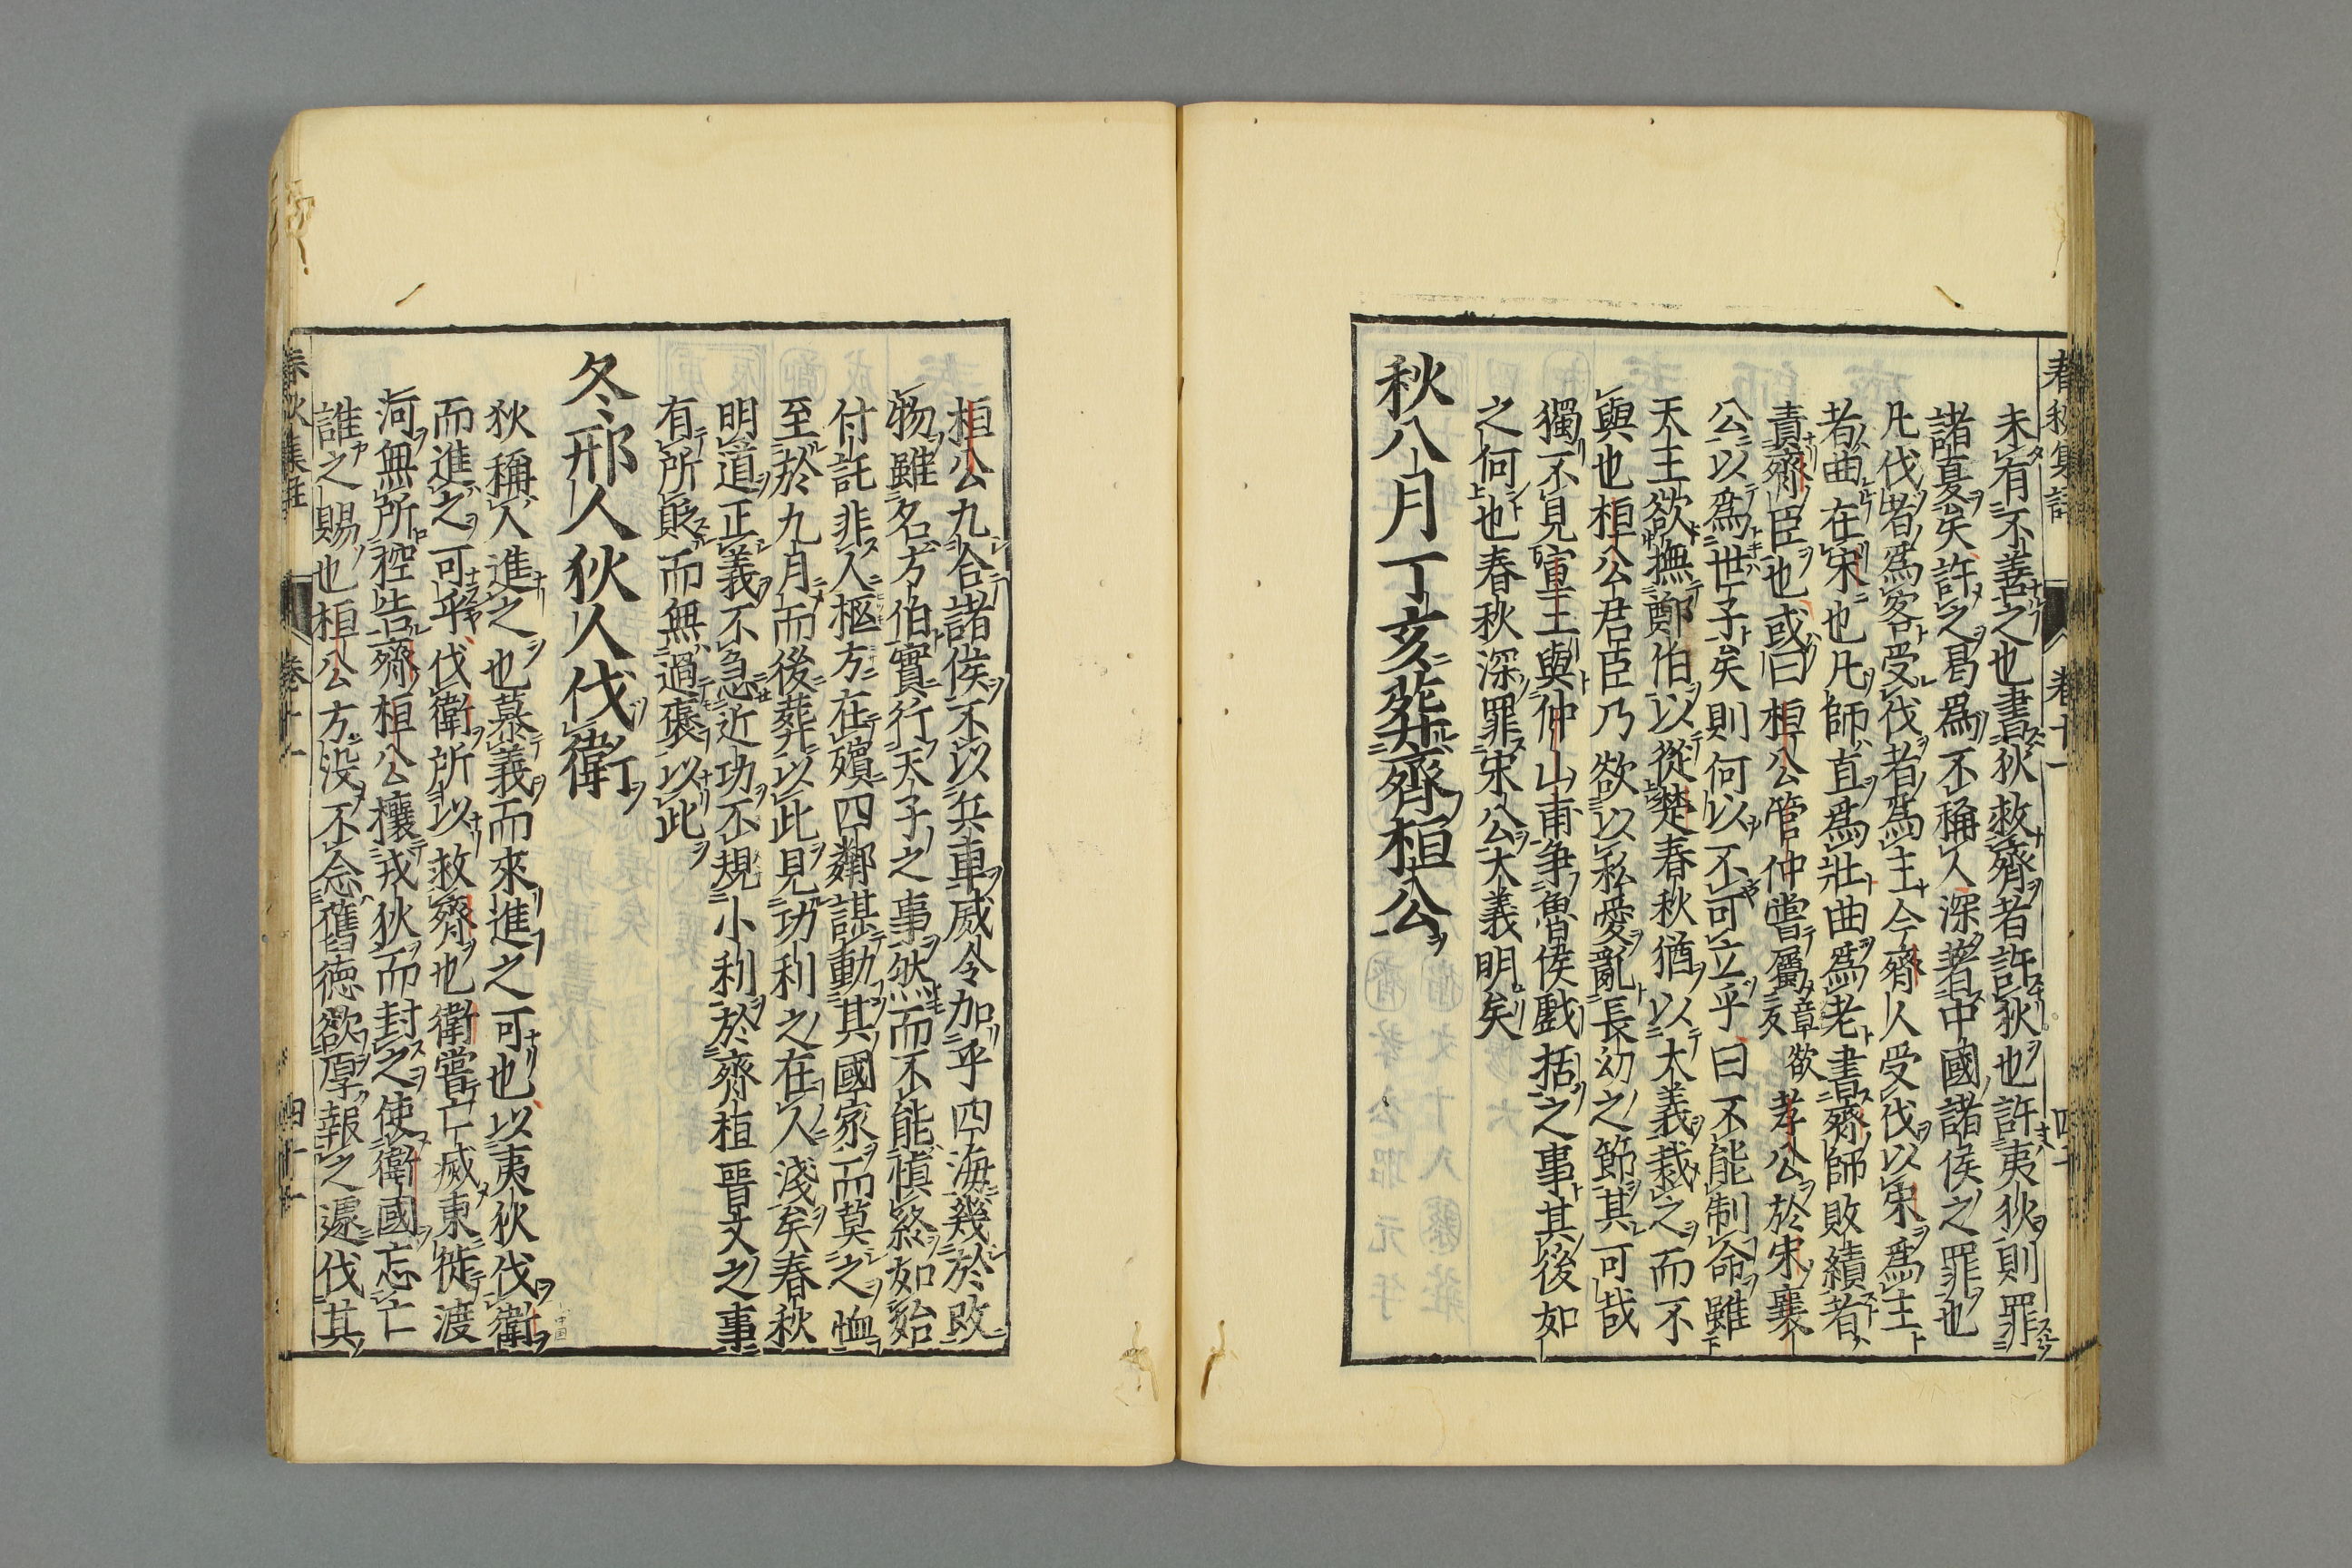 春秋集註　卷十一　四十
未有不善之也書狄救齊者許狄也許夷狄則罪
諸夏矣許之曷爲不稱人深著中國諸侯之罪也
凡伐者爲客受伐者爲主今齊人受伐以宋爲主
者曲在宋也凡師直爲壯曲爲老書齊師敗績者
責齊臣也或曰桓公管仲嘗屬孝公於宋襄
公以爲世子矣則何以不可立乎曰不能制命雖
天王欲撫鄭伯以從楚春秋猶以大義裁之而不
與也桓公君臣乃欲以私愛亂長幼之節其可哉
獨不見宣王與仲山甫争魯侯戲括之事其後如
之何也春秋深罪宋公大義明矣
秋八月丁亥葬齊桓公
桓公九合諸侯不以兵車威令加乎四海幾於改
物雖名方伯實行天子之事然而不能慎終如始
付託非人柩方在殯四鄰謀動其國家而莫之恤
至於九月而後葬以此見功利之在人淺矣春秋
明道正義不急近功不規小利於齊桓晉文之事
有所貶而無過襃以此
冬邢人狄人伐衛
狄稱人進之也慕義而來進之可也以夷狄伐衛
而進之可乎伐衛所以救齊也衛嘗亡滅東徙渡
河無所控告齊桓公攘戎狄而封之使衛國忘亡
誰之賜也桓公方没不念舊德欲厚報之遽伐其
春秋集註　卷十一　四十一